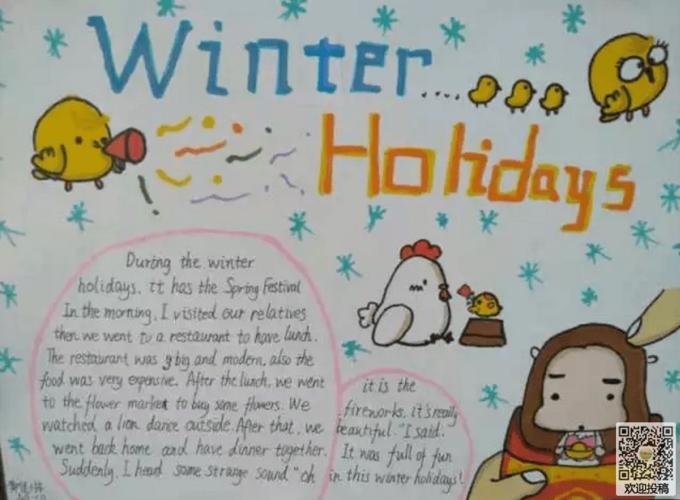 Winter....
Holidays
During the winter
holidays, it has the Spring Festival
In the morning, I visited our relatives
then we went to a restaurant to have lunch.
The restaurant was big and modern, also the
food was very expensive. After the lunch, we went
to the flower market to buy some flowers. We
watched a lion dance outside. After that, we
went back home and have dinner together.
Suddenly, I heard some strange sound "oh
it is the
fireworks, it's really
beautiful." I said.
It was full of fun
in this winter holidays!
欢迎投稿